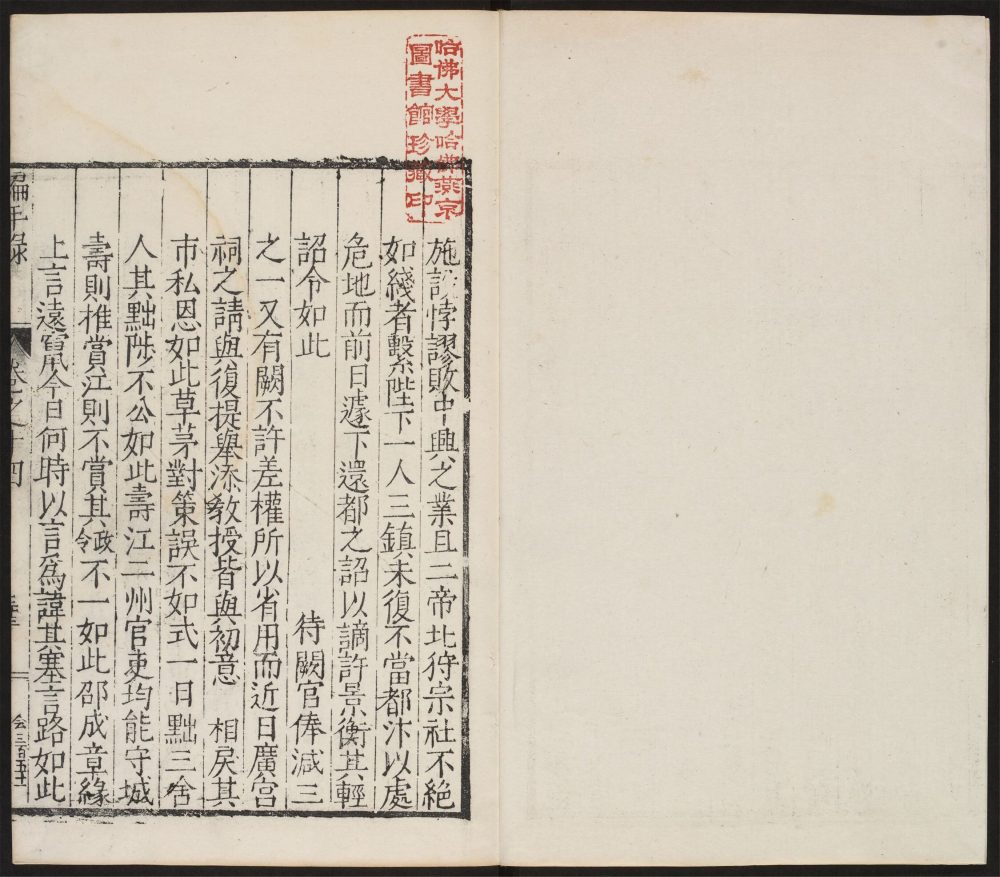 哈佛大學哈佛燕京
圖書館珍藏印
施設悖謬敗中興之業且二帝北狩宗社不絕
如綫者繫陛下一人三鎮未復不當都汴以處
危地而前日遽下還都之詔以謫許景衡其輕
詔令如此　待闕官俸減三
之一又有闕不許差權所以省用而近日廣宮
祠之請與復提舉添教授皆與初意　相戾其
市私恩如此草茅對策誤不如式一日黜三舍
人其黜陟不公如此壽江二州官吏均能守城
壽則推賞江則不賞其政令不一如此邵成章緣
上言遠竄今日何時以言爲諱其塞言路如此
編年錄　卷之十四